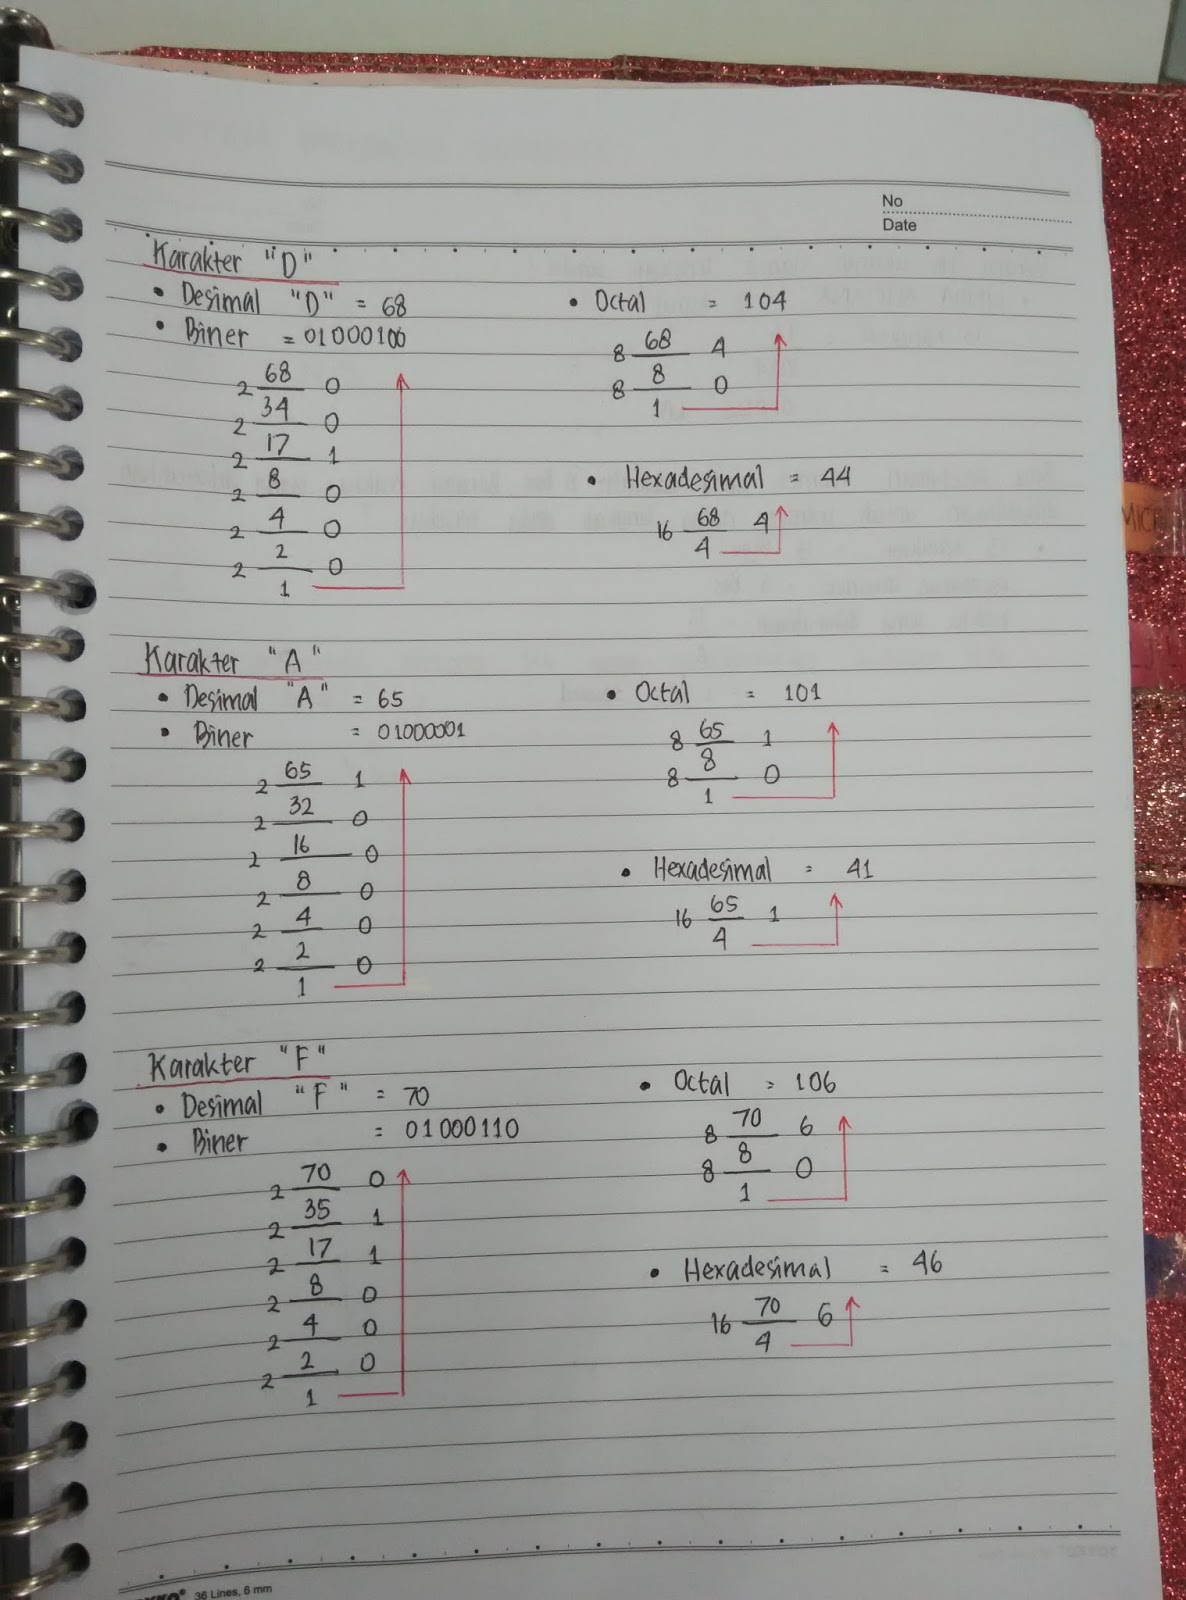 No
Date
Karakter "D"
• Desimal "D" = 68
• Biner = 01000100
2 68 0
2 34 0
2 17 1
2 8 0
2 4 0
2 2 0
1
• Octal = 104
8 68 4
8 8 0
1
• Hexadesimal = 44
16 68 4
4
Karakter "A"
• Desimal "A" = 65
• Biner = 01000001
2 65 1
2 32 0
2 16 0
2 8 0
2 4 0
2 2 0
1
• Octal = 101
8 65 1
8 8 0
1
• Hexadesimal = 41
16 65 1
4
Karakter "F"
• Desimal "F" = 70
• Biner = 01000110
2 70 0
2 35 1
2 17 1
2 8 0
2 4 0
2 2 0
1
• Octal = 106
8 70 6
8 8 0
1
• Hexadesimal = 46
16 70 6
4
36 Lines, 6 mm